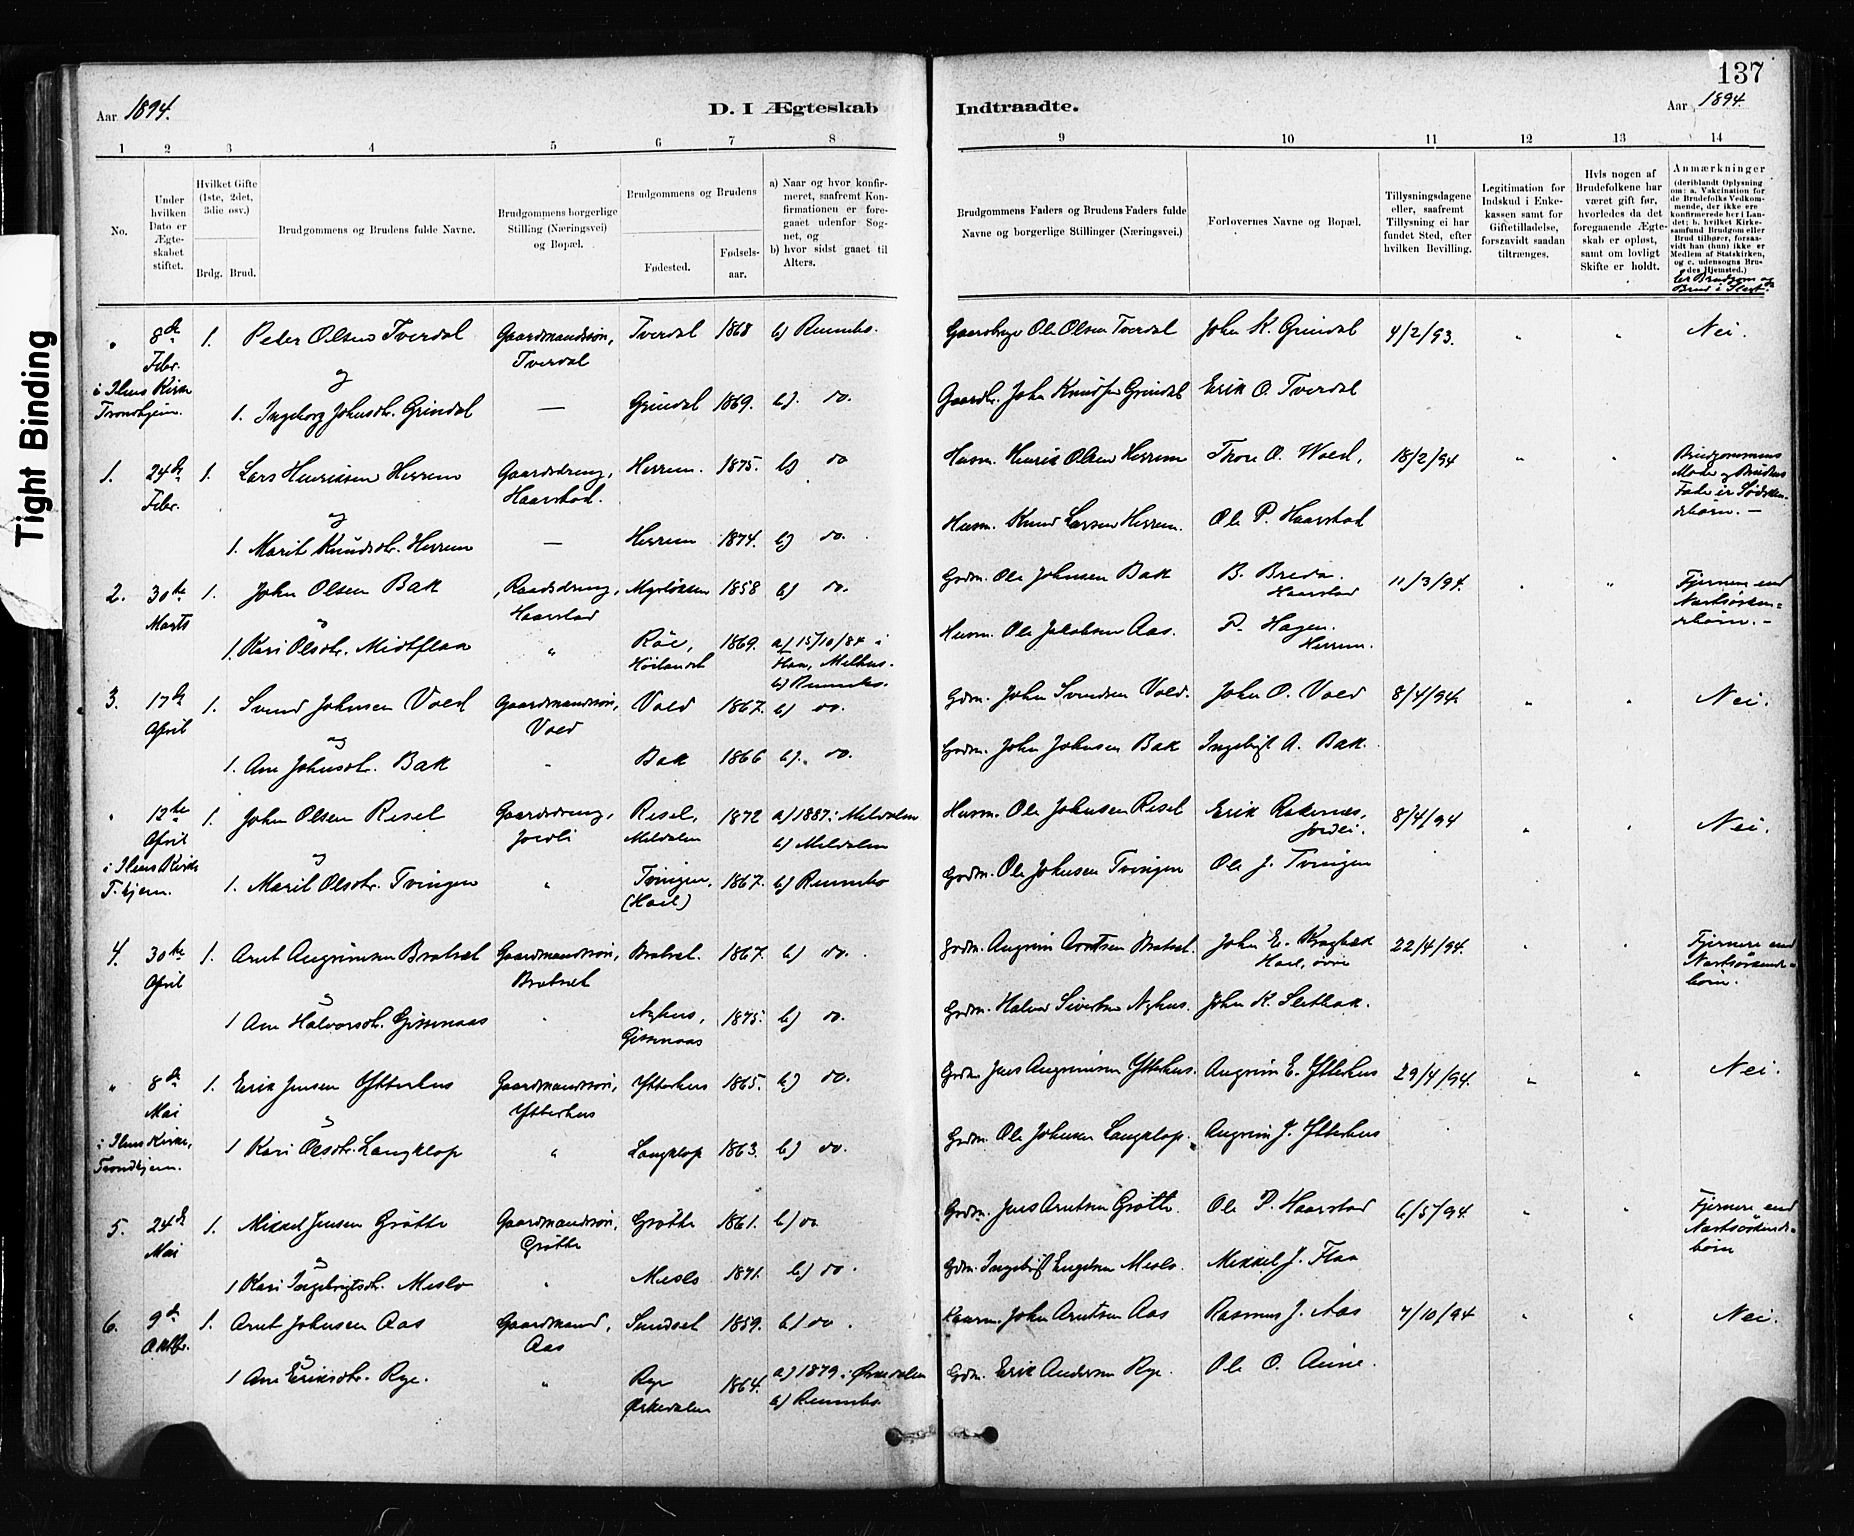 Tight Binding
137
Aar 1894.
D. I Ægteskab
Indtraadte.
Aar 1894
1 2 3 4 5 6 7 8
9 10 11 12 13 14
No.
Under hvilken Dato er Ægteskabet stiftet.
Hvilket Gifte (1ste, 2det, 3die osv.)
Brdg. Brud.
Brudgommens og Brudens fulde Navne.
Brudgommens borgerlige Stilling (Næringsvei) og Bopæl.
Brudgommens og Brudens
Fødested.
Fødselsaar.
a) Naar og hvor konfirmeret, saafremt Konfirmationen er foregaaet udenfor Sognet, og
b) hvor sidst gaaet til Alters.
Brudgommens Faders og Brudens Faders fulde Navne og borgerlige Stillinger (Næringsvei.)
Forlovernes Navne og Bopæl.
Tillysningsdagene eller, saafremt Tillysning ei har fundet Sted, efter hvilken Bevilling.
Legitimation for Indskud i Enkekassen samt for Giftetilladelse, forsaavidt saadan tiltrænges.
Hvis nogen af Brudefolkene har været gift før, hvorledes da det foregaaende Ægteskab er opløst, samt om lovligt Skifte er holdt.
Anmærkninger
(deriblandt Oplysning om: a. Vakcination for de Brudefolks Vedkommende, der ikke ere konfirmerede her i Landet; b. hvilket Kirkesamfund Brudgom eller Brud tilhører, forsaavidt han (hun) ikke er Medlem af Statskirken, og c. udensogns Brudes Hjemsted.)
Er Brudgom og Brud i Slægt?
" 8de Febr. 1. Peter Olsen Tverdal Gaardmandssøn, Tverdal Tverdal 1868 b) Rennebo. Ole Olsen Tverdal John K. Grindal 4/2/93. " " Nei.
i Ilens Kirke Trondhjem.
og
1. Ingeborg Johnsdtr. Grindal — Grindal 1869. b). do. John Knudsen Grindal Erik O. Tverdal
1. 24de Febr. 1. Lars Henriksen Herrem Gaardsdreng, Haarstad. Herrem. 1875. b) do Husm. Henrik Olsen Herrem Thore O. Voll, 18/2/94 " " Brudgommens Moder og Brudens Fader er Sødskendebørn. —
og
1. Marit Knudsdtr. Herrem — Herrem 1874. b) do. Husm. Knud Larsen Herrem. Ole P. Haarstad
2. 30te Marts 1. John Olsen Bak Haarstad 1858 b) do. Gdm. Ole Johnsen Bak B. Breda. Haarstad 11/3/94. " " Fjernere end Næstsødskendebørn. –
1. Kari Olsdtr. Midtflaa " 1869. a) 15/10/84 i Melhus. b) Rennebo. Husm. Ole Jakobsen Aas. P. Hagen. Herrem.
3. 17de April 1. Svend Johnsen Vold Gaardmandssøn, Vold Vold 1867. b) do. Gdm. John Svendsen Vold. John O. Vold 8/4/94. " " Nei.
og
1. Ane Johnsdtr. Bak " Bak 1866 b). do. Gdm. John Johnsen Bak Ingebrigt A. Bak.
" 12te April 1. John Olsen Resel Gaardsdreng, Jordli Resel, Meldalen 1872 a) 1887 i Meldalen b) Meldalen Husm. Ole Johnsen Resel Erik 8/4/94 " " Nei.
i Ilens Kirke T.hjem.
1. Marit Olsdtr. Tvingen " Tvingen, (Hoel) 1867. b) Rennebo Gdm. Ole Johnsen Tvingen Ole J. Tvingen
4. 30te April 1. Arnt Angrimsen Bratset Gaardmandssøn, Bratset Bratset. 1867. b) do. Gdm. Angrim Arntsen Bratset. John E. 22/4/94. " " Fjernere end Næstsødskendebørn.
1 Ane Halvorsdtr. Gissenaas " Nyhus, Gissenaas 1875. b) do. Gdm. Halvor Sivertsen Nyhus. John K.
" 8de Mai 1. Erik Jensen Ytterhus Gaardmandssøn, Ytterhus Ytterhus 1865. b) do. Gdm. Jens Angrimsen Ytterhus. Angrim E. Ytterhus 29/4/94. " " Nei.
i Ilens Kirke, Trondhjem.
1 Kari Olsdtr. Langklop " Langklop 1863. b) do. Gdm. Ole Johnsen Langklop. Angrim J. Ytterhus
5. 24de Mai 1. Mikkel Jensen Grötte Gaardmandssøn, Grötte Grötte 1861. b) do Gdm. Jens Arntsen Grötte. Ole P. Haarstad 6/5/94. " " Fjernere end Næstsødskendebørn
1 Kari Ingebrigtsdtr. Meslo " Meslo 1871. b) do. Gdm. Ingebrigt Engelsen Meslo. Mikkel J. Flaa
6. 9de Oktbr. 1. Arnt Johnsen Aas Gaardmand, Aas Sundset 1859. b) do. John Arntsen Aas Rasmus J. Aas 7/10/94 " " Nei.
1 Ane Eriksdtr. Rye. " Rye Ørkedalen 1864. a) 1879 i Ørkedalen b) Rennebo Gdm. Erik Andersen Rye. Ole O. Aune.